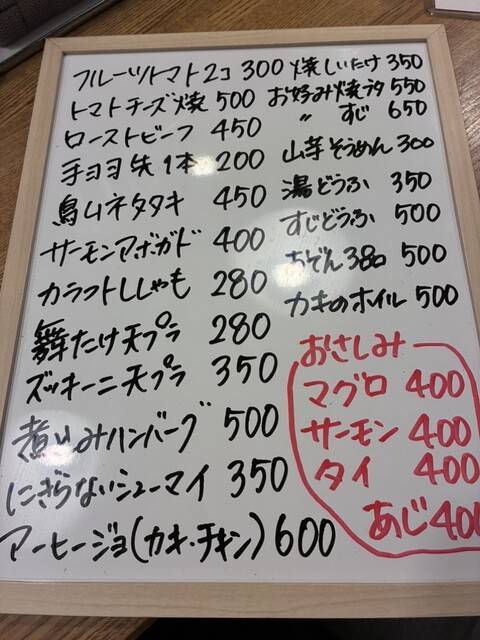 フルーツトマト2コ 300
トマトチーズ焼 500
ローストビーフ 450
手ヨヨ矢 1本 200
鳥ムネタタキ 450
サーモンアボガド 400
カラフトししゃも 280
舞たけ天プラ 280
ズッキーニ天プラ 350
煮込みハンバーグ 500
にぎらないシューマイ 350
アーヒージョ(カキ・チキン) 600
焼しいたけ 350
お好み焼ブタ 550
〃 すじ 650
山芋そうめん 300
湯どうふ 350
すじどうふ 500
おでん3コ 500
カキのホイル 500
おさしみ
マグロ 400
サーモン 400
タイ 400
あじ 400